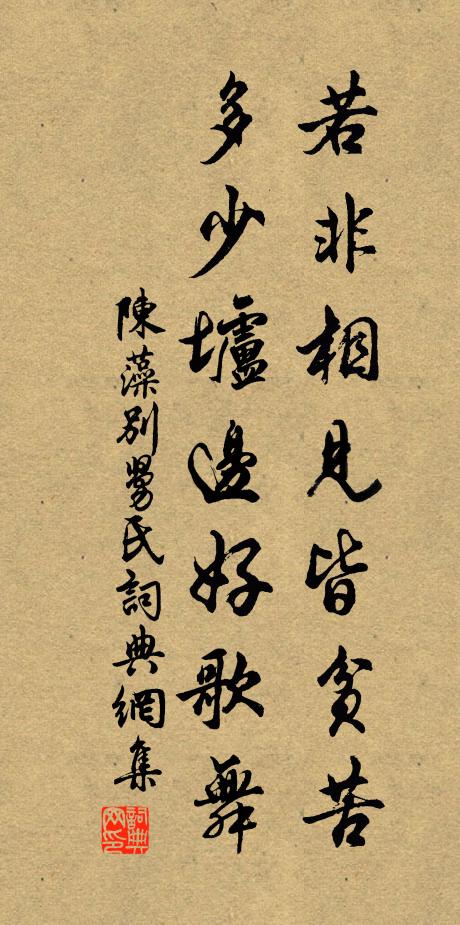 若非相見皆貧苦
多少壚邊好歌舞
陳藻別舅氏詞典網集
詞典
网印